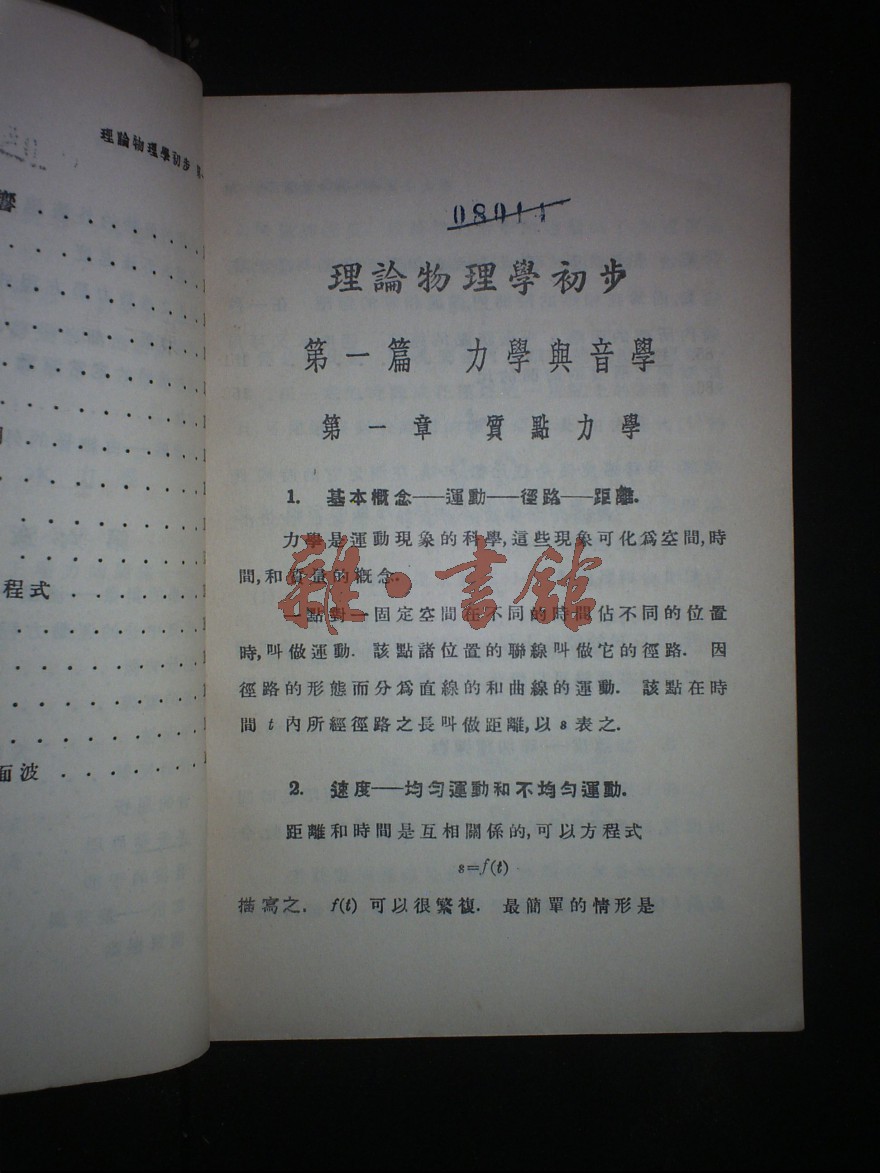 理論物理學初步
響
程式
面波
08011
理論物理學初步
第一篇 力學與音學
第一章 質點力學
1. 基本概念——運動——徑路——距離.
力學是運動現象的科學,這些現象可化爲空間,時
間,和質量的概念.
一點對一固定空間在不同的時間佔不同的位置
時,叫做運動. 該點諸位置的聯線叫做它的徑路. 因
徑路的形態而分爲直線的和曲線的運動. 該點在時
間 t 內所經徑路之長叫做距離,以 s 表之.
2. 速度——均勻運動和不均勻運動.
距離和時間是互相關係的,可以方程式
s=f(t)
描寫之. f(t) 可以很繁複. 最簡單的情形是
雜·書館